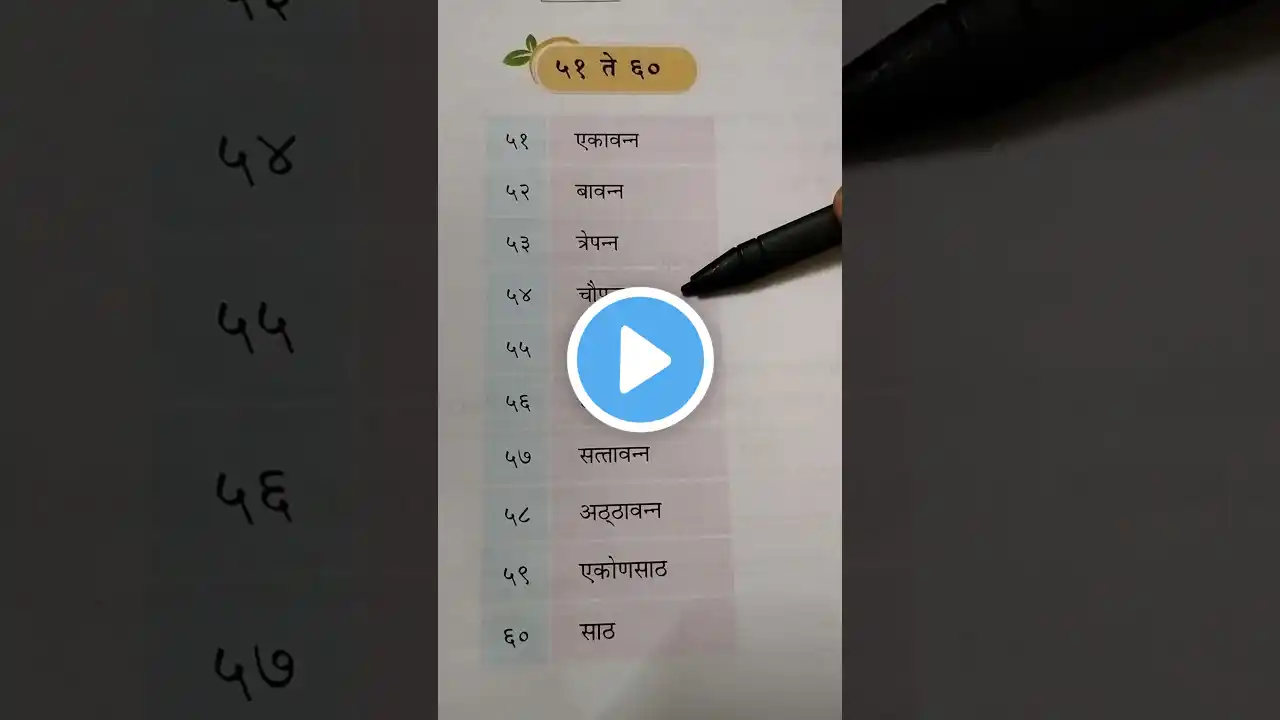 ५१ ते ६०
५१ एकावन्न
५२ बावन्न
५३ त्रेपन्न
५४
५५
५६
५७ सत्तावन्न
५८ अठ्ठावन्न
५९ एकोणसाठ
६० साठ
५४
५५
५६
५७